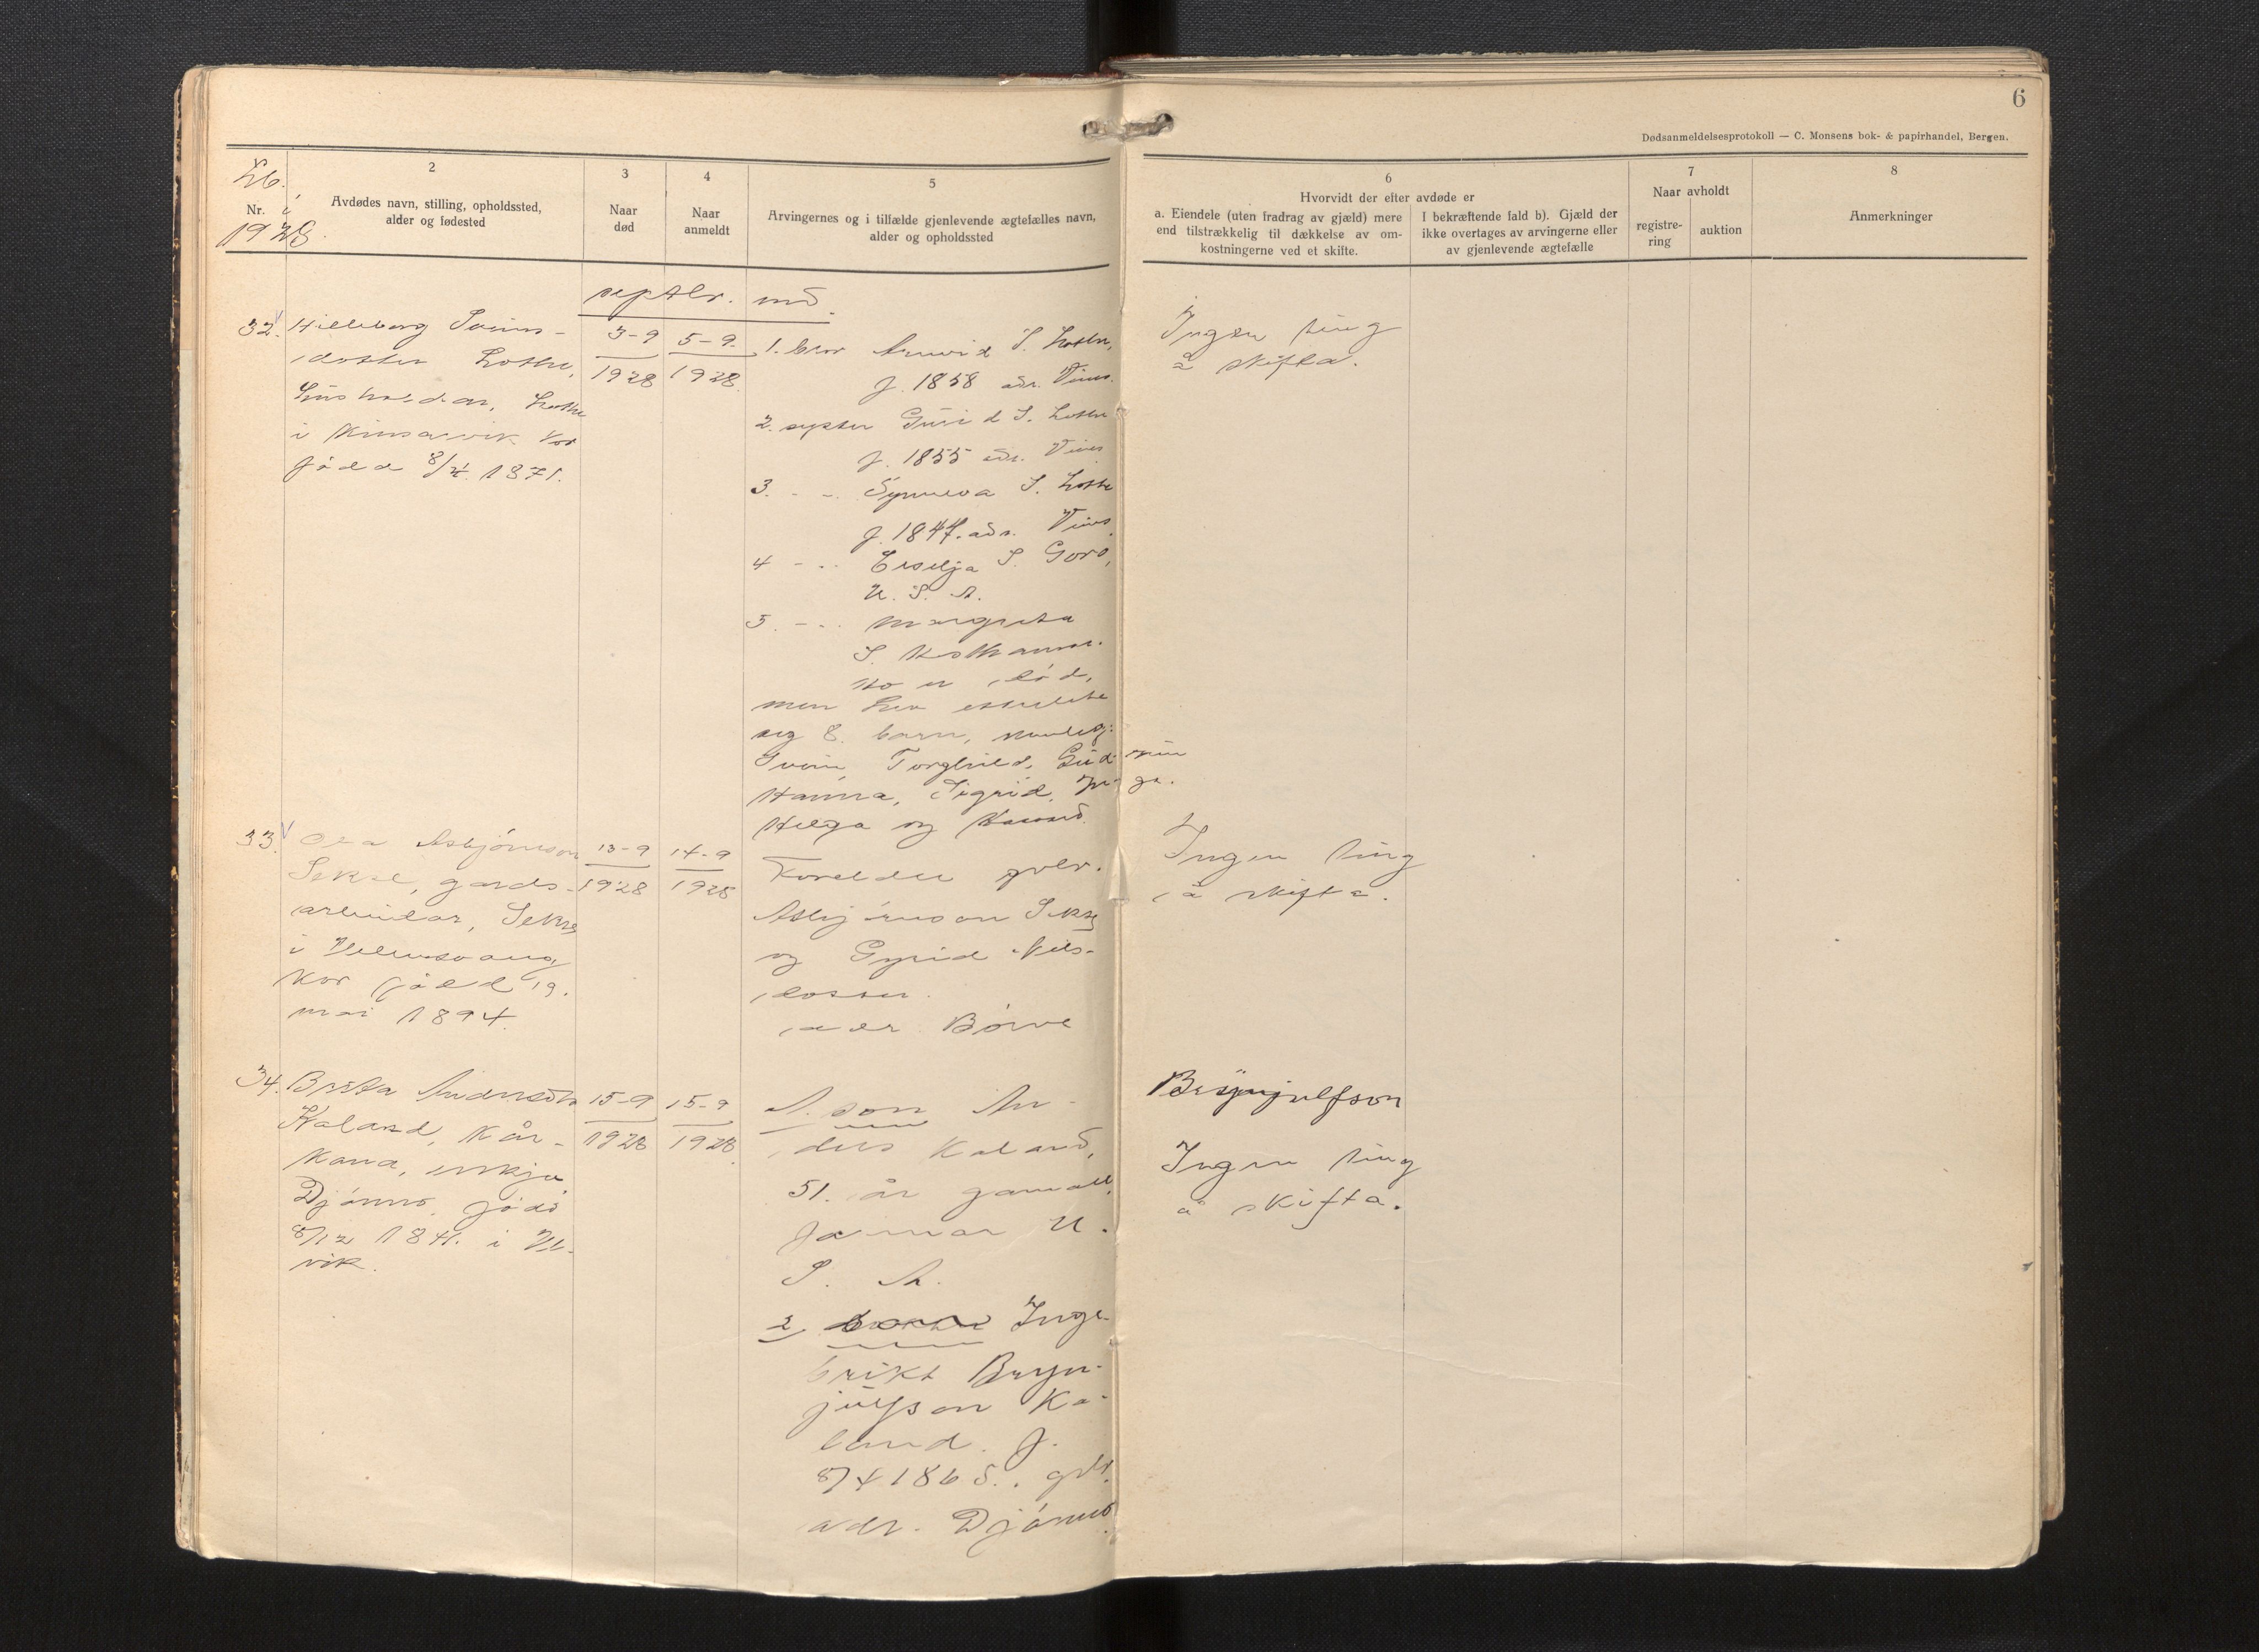 6
Dødsanmeldelsesprotokoll — C. Monsens bok- & papirhandel, Bergen.
Lb.
Nr. i
1928.
2
Avdødes navn, stilling, opholdssted,
alder og fødested
3
Naar
død
4
Naar
anmeldt
5
Arvingernes og i tilfælde gjenlevende ægtefælles navn,
alder og opholdssted
6
Hvorvidt der efter avdøde er
a. Eiendele (uten fradrag av gjæld) mere
end tilstrækkelig til dækkelse av om-
kostningerne ved et skifte.
I bekræftende fald b). Gjæld der
ikke overtages av arvingerne eller
av gjenlevende ægtefælle
7
Naar avholdt
registre-
ring
auktion
8
Anmerkninger
septbr. md.
32.
Hillborg Sveins-
dotter Lothe,
hushaldar, Lothe
i Kinsarvik
fødd 8/4 1871.
3-9
1928
5-9.
1928.
1. bror S. Lothe,
f. 1858 adr.
2. syster Guri d S. Lothe
f. 1855 adr.
3. - - Synneva S. Lothe
f. 1847. adr.
4 - - S.
U. S. A.
5. - - Margreta
S.
Ho er död,
men hev etterlete
seg 8 born, nemleg:
Svein, Torghild, Gud-
Hanna, Sigrid, In-ga.
Helga og
Ingen ting
å skifta.
33.
Ola Asbjörnson
Sekse, gards-
arbeidar, Sekse
i Ullensvang
född 19.
mai 1894.
13-9
1928
14-9
1928
Foreldre gbr.
Asbjörnson Sekse
og Gyrid Nils-
dotter.
adr Börve
Ingen ting
å skifta.
34.
Brita Andersdtr
Kaland, kår-
kona, enkja
Djönno, född
8/12 1841. i Ul-
vik.
15-9
1928
15-9
1928.
1. son An-
ders Kaland,
51. år gamall,
farmar U.
S. A.
2 Inge-
brikt Bryn-
julfson Ka-
land. f.
8/4 1865. gbr.
adr. Djönno.
Brynjulfson
Ingen ting
å skifta.